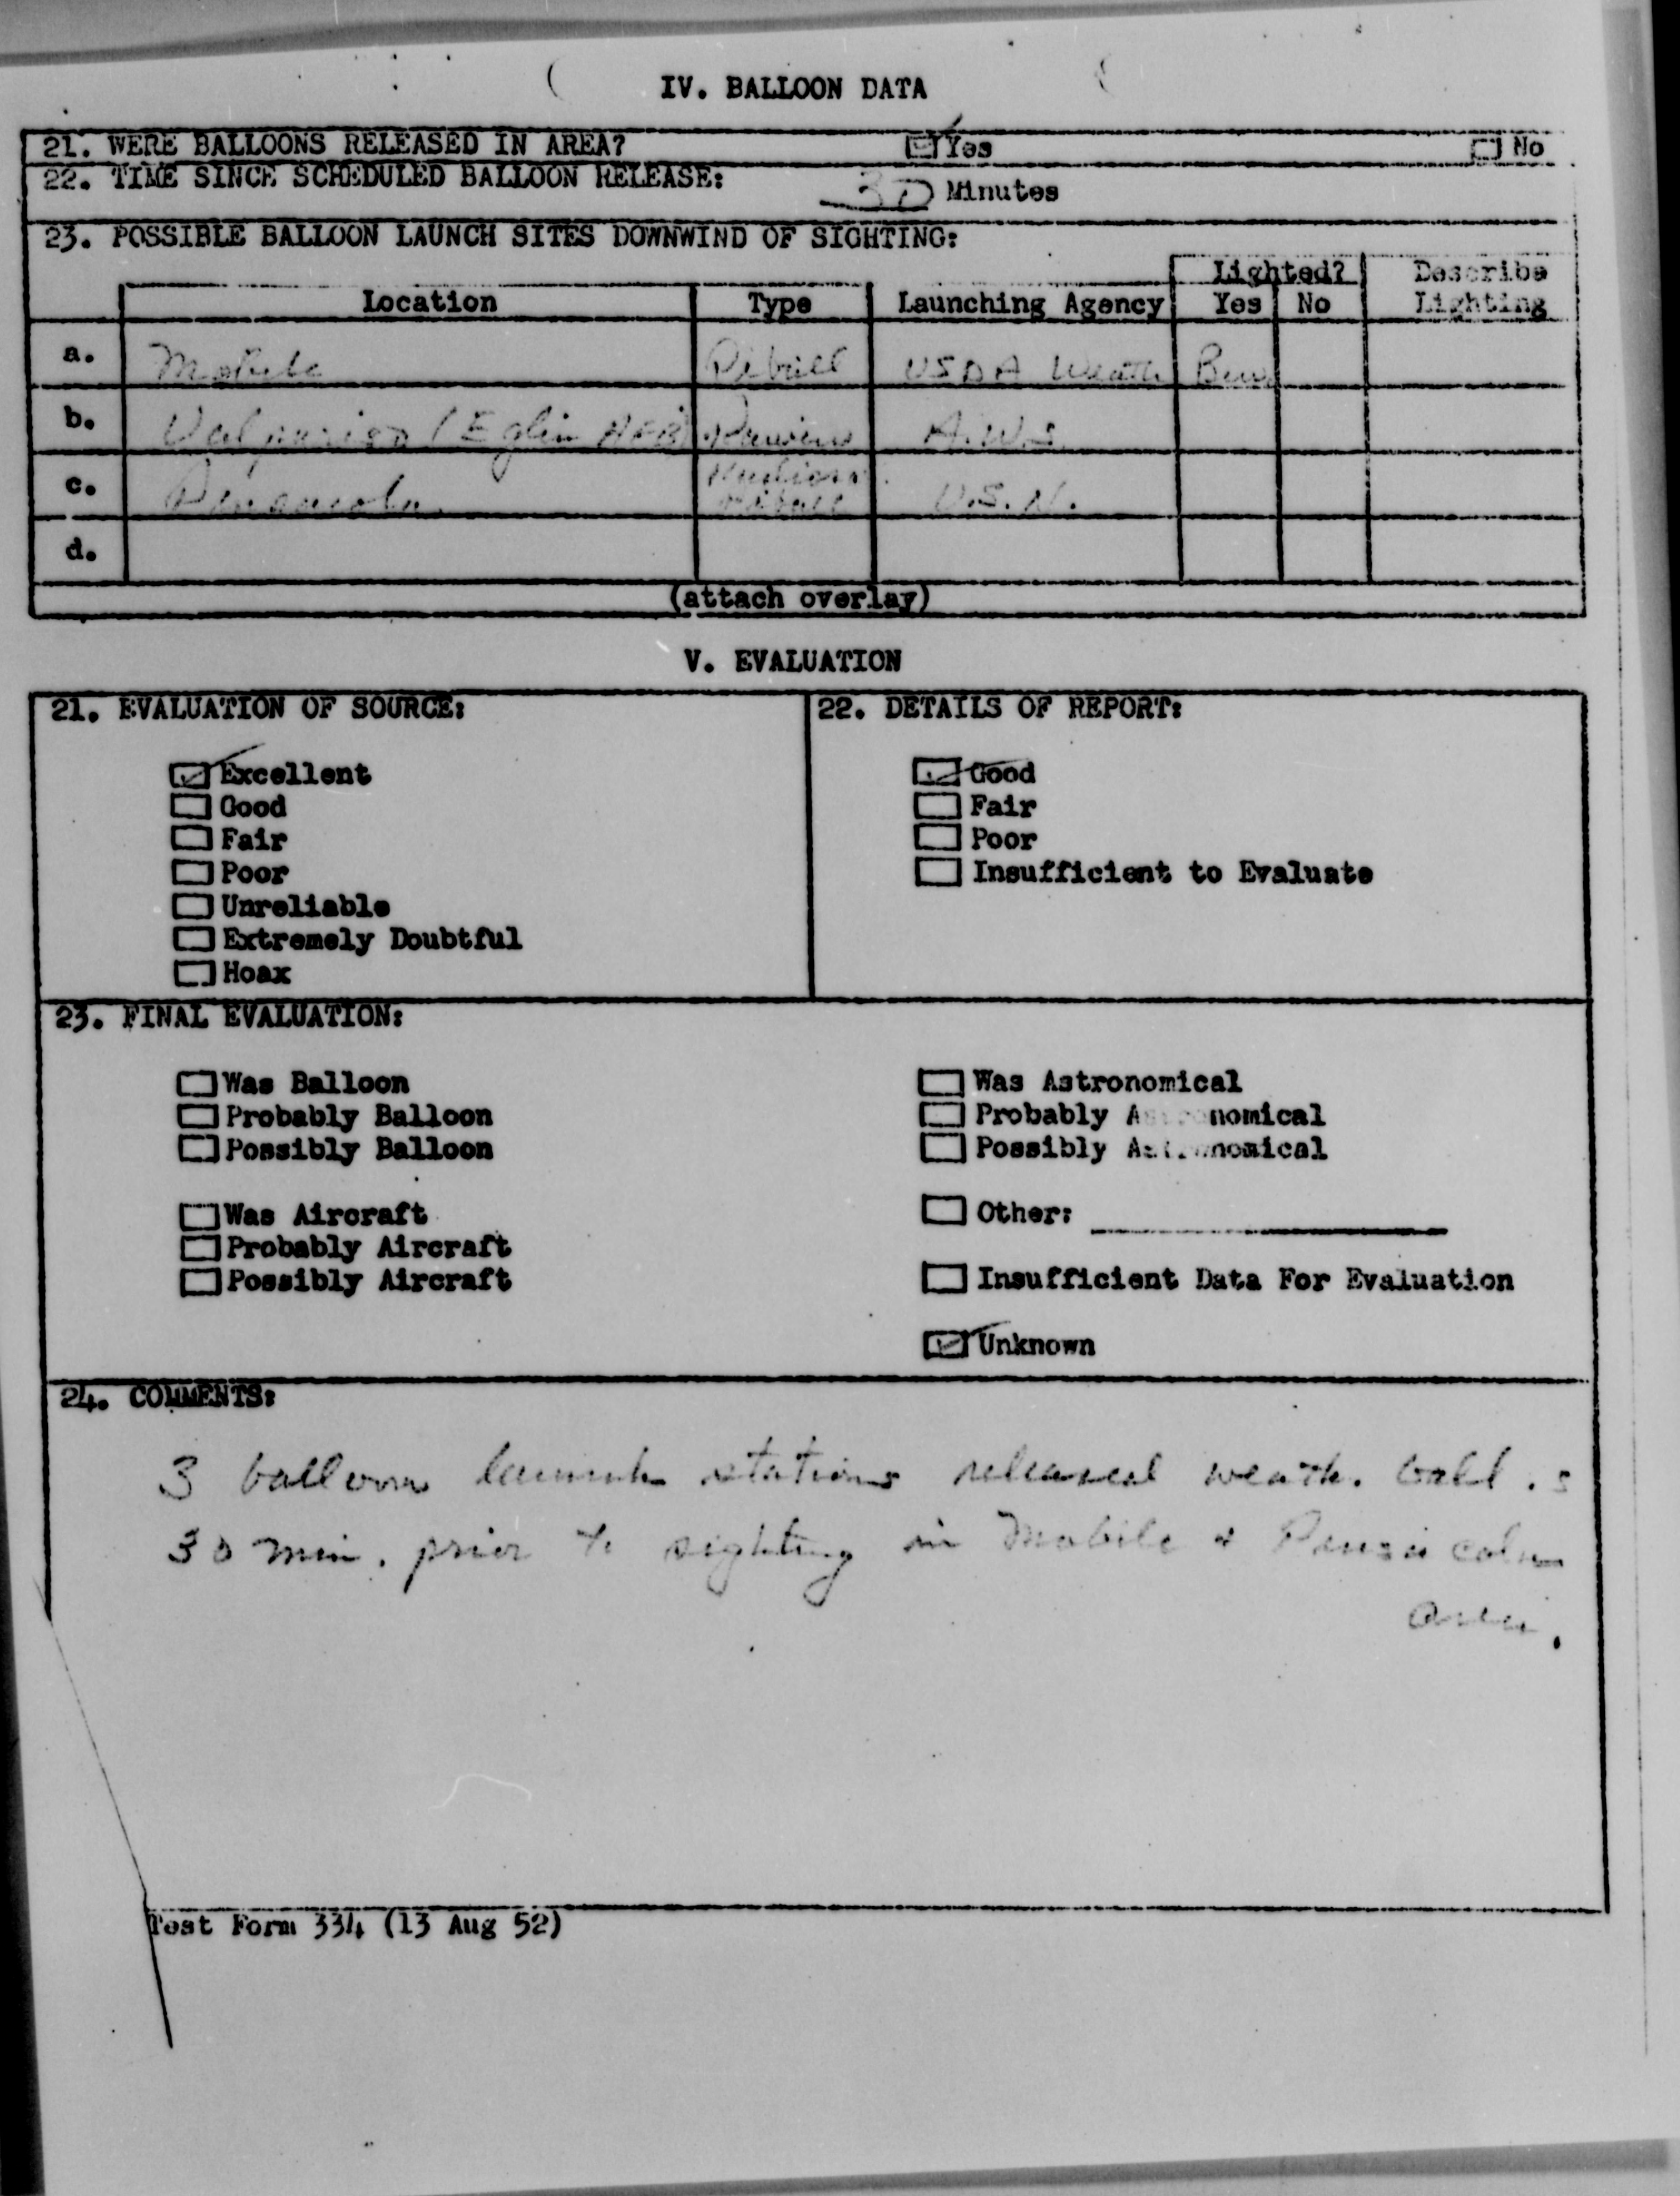 IV. BALLOON DATA
21. WERE BALLOONS RELEASED IN AREA? Yes No
22. TIME SINCE SCHEDULED BALLOON RELEASE: 30 Minutes
23. POSSIBLE BALLOON LAUNCH SITES DOWNWIND OF SIGHTING:
Lighted? Describe
Location Type Launching Agency Yes No Lighting
a. Mobile Piball USDA Weath Bur
b. Valpariso (Eglin AFB) A.W.S.
c. Pensacola U.S.N.
d.
(attach overlay)
V. EVALUATION
21. EVALUATION OF SOURCE: 22. DETAILS OF REPORT:
Excellent Good
Good Fair
Fair Poor
Poor Insufficient to Evaluate
Unreliable
Extremely Doubtful
Hoax
23. FINAL EVALUATION:
Was Balloon Was Astronomical
Probably Balloon Probably Astronomical
Possibly Balloon Possibly Astronomical
Was Aircraft Other:
Probably Aircraft
Possibly Aircraft Insufficient Data For Evaluation
Unknown
24. COMMENTS:
3 balloon launch stations released weath. ball.s
30 min. prior to sighting in Mobile & Pensacola
area.
Test Form 334 (13 Aug 52)